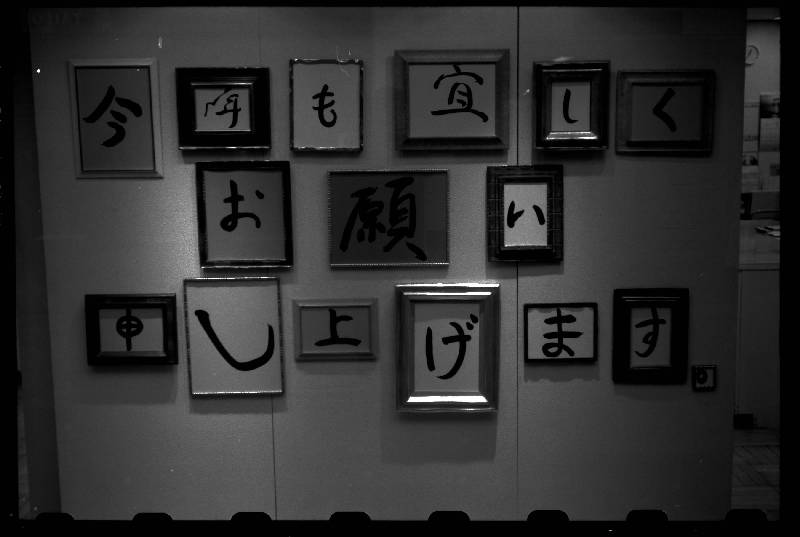 今年も宜しく
お願い
申し上げます。